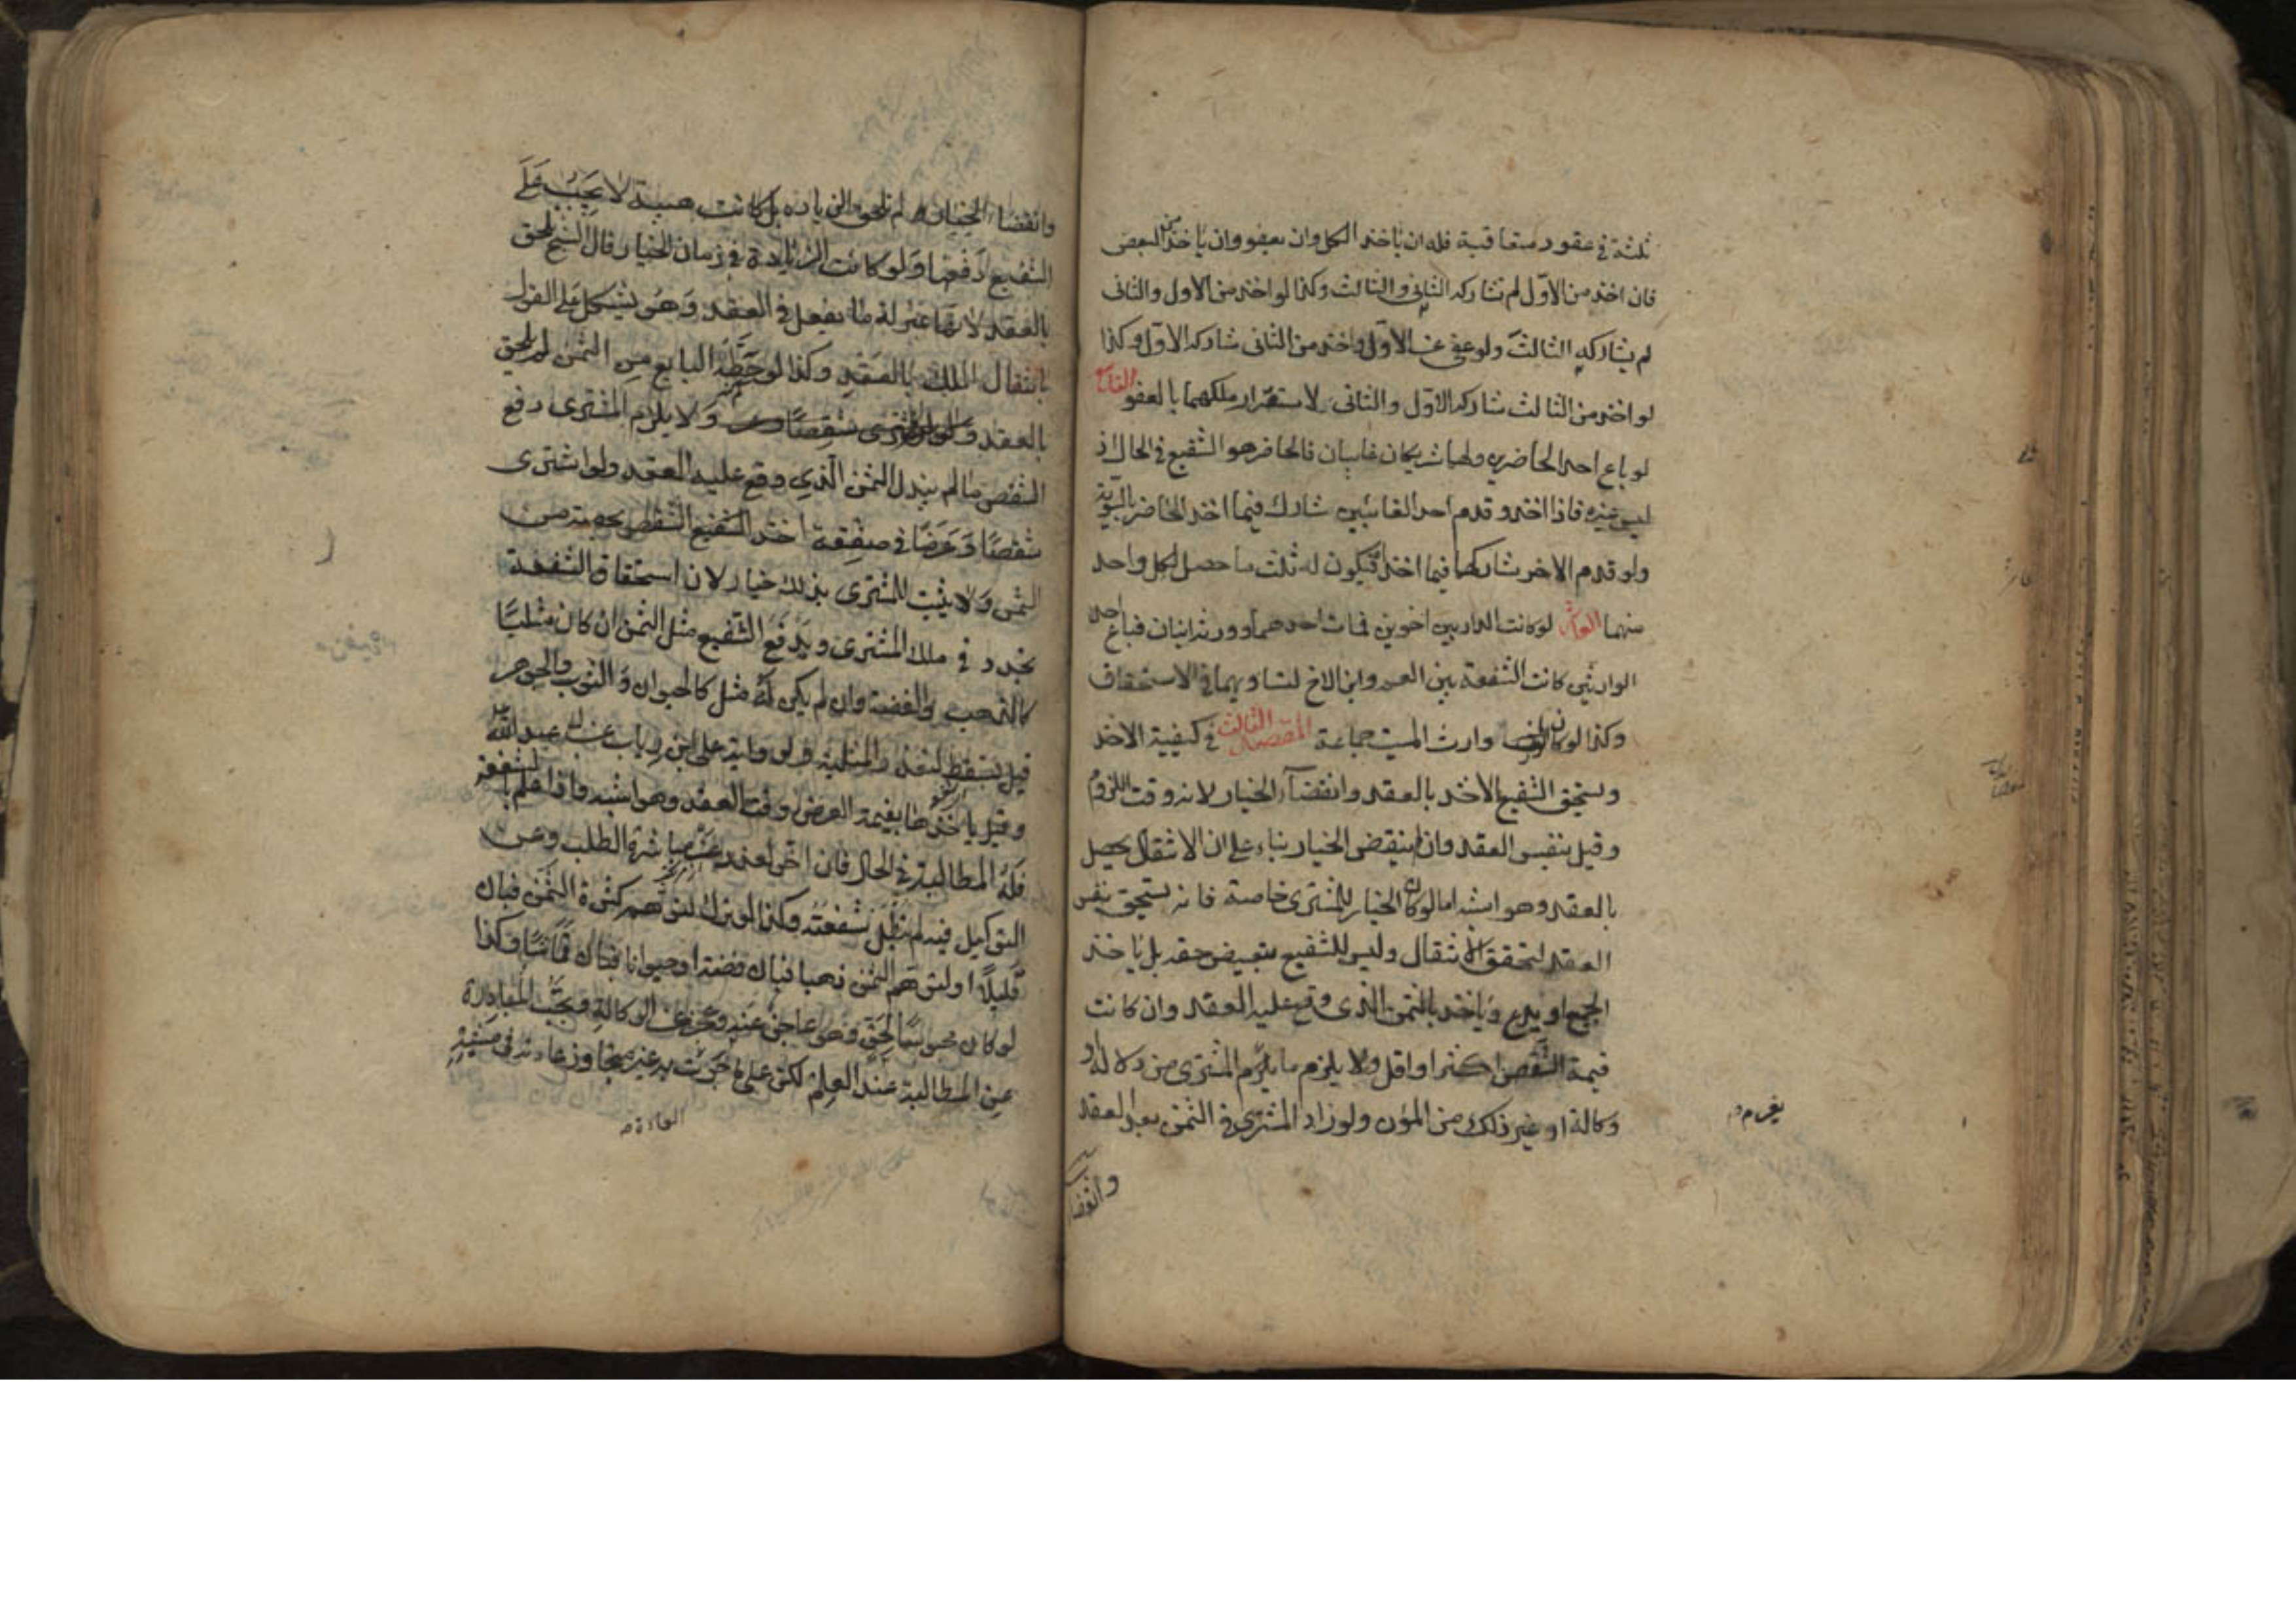 ثلثة في عقود متعاقبة فله ان ياخذ الكل وان يعفو وان ياخذ من البعض
فان اخذ من الاول لم يشاركه الثاني والثالث وكذا لو اخذ من الاول والثاني
لم يشاركه الثالث ولو عفي عن الاول واخذ من الثاني شاركه الاول وكذا
لو اخذ من الثالث شاركه الاول والثاني لاستقرار ملكهما بالعفو
لو باع احد الحاضرين ولهما شريكان غايبان فالحاضر هو الشفيع في الحال اذ
ليس غيره فاذا اخذ وقدم احد الغائبين شارك فيما اخذ الحاضر بالسوية
ولو قدم الاخر شاركهما فيما اخذا فيكون له ثلث ما حصل لكل واحد
منهما العاشر لو كانت الدار بين اخوين فمات احدهما وورثه ابنان فباع احد
الوارثين كانت الشفعة بين العم وابن الاخ لتساويهما في الاستحقاق
وكذا لو كان وارث الميت جماعة المقصد الثالث في كيفية الاخذ
ويستحق الشفيع الاخذ بالعقد وانقضاء الخيار لانه وقت اللزوم
وقيل بنفس العقد وان لم ينقض الخيار بناء على ان الانتقال يحصل
بالعقد وهو اشبه اما لو كان الخيار للمشتري خاصة فانه يستحق بنفس
العقد لتحقق الانتقال وليس للشفيع تبعيض حقه بل ياخذ
الجميع او يدع وياخذ بالثمن الذي وقع عليه العقد وان كانت
قيمة الشقص اكثر او اقل ولا يلزم ما يلزم المشتري من دلالة او
وكالة او غير ذلك من المؤن ولو زاد المشتري في الثمن بعد العقد
يغرم
وانقضا
وانقضاء الخيار لم تلحق الزيادة بل كانت هبة لا يجب على
الشفيع دفعها ولو كانت الزيادة في زمان الخيار قال الشيخ تلحق
بالعقد لانها بمنزلة ما يفعل في العقد وهو يشكل على القول
بانتقال الملك بالعقد وكذا لو حط البايع من الثمن لم يلحق
بالعقد ولا يلزم المشتري دفع
الشقص ما لم يبذل الثمن الذي وقع عليه العقد ولو اشترى
شقصا وعرضا في صفقة اخذ الشفيع الشقص بحصته من
الثمن ولا يثبت للمشتري بذلك خيار لان استحقاق الشفعة
تجدد في ملك المشتري ويدفع الشفيع مثل الثمن ان كان مثليا
كالذهب والفضة وان لم يكن له مثل كالحيوان والثوب والجوهر
قيل تسقط لتعذر المثلية ولرواية علي بن رياب عن ابي عبد الله
وقيل ياخذها بقيمة العرض وقت العقد وهو اشبه واذا علم بالشفعة
فله المطالبة في الحال فان اخر لعذر عن مباشرة الطلب وعن
التوكيل فيه لم تبطل شفعته وكذا لو ترك لتوهم كثرة الثمن فبان
قليلا او لتوهم الثمن ذهبا فبان فضة او حيوانا فبان قماشا وكذا
لو كان محبوسا بحق هو عاجز عنه وعجز عن الوكالة وتجب المبادرة
عن المطالبة عند العلم لكن على ما جرت به غير متجاوز عادته في مشيه
العادة